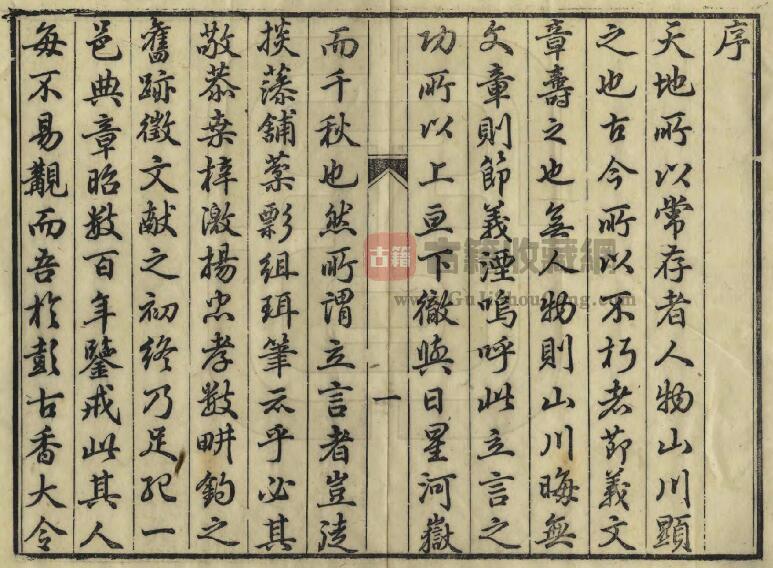 序
天地所以常存者人物山川顯
之也古今所以不朽者節義文
章壽之也無人物則山川晦無
文章則節義湮嗚呼此立言之
功所以上亘下徹與日星河嶽
一
而千秋也然所謂立言者豈徒
掞藻舖彯組珥筆云乎必其
敬恭桑梓激揚忠孝數畊釣之
舊跡徵文献之初終乃足紀一
邑典章昭數百年鑒戒此其人
每不易覯而吾於彭古香大令
古籍
古籍收藏網
www.GuJiShouCang.com